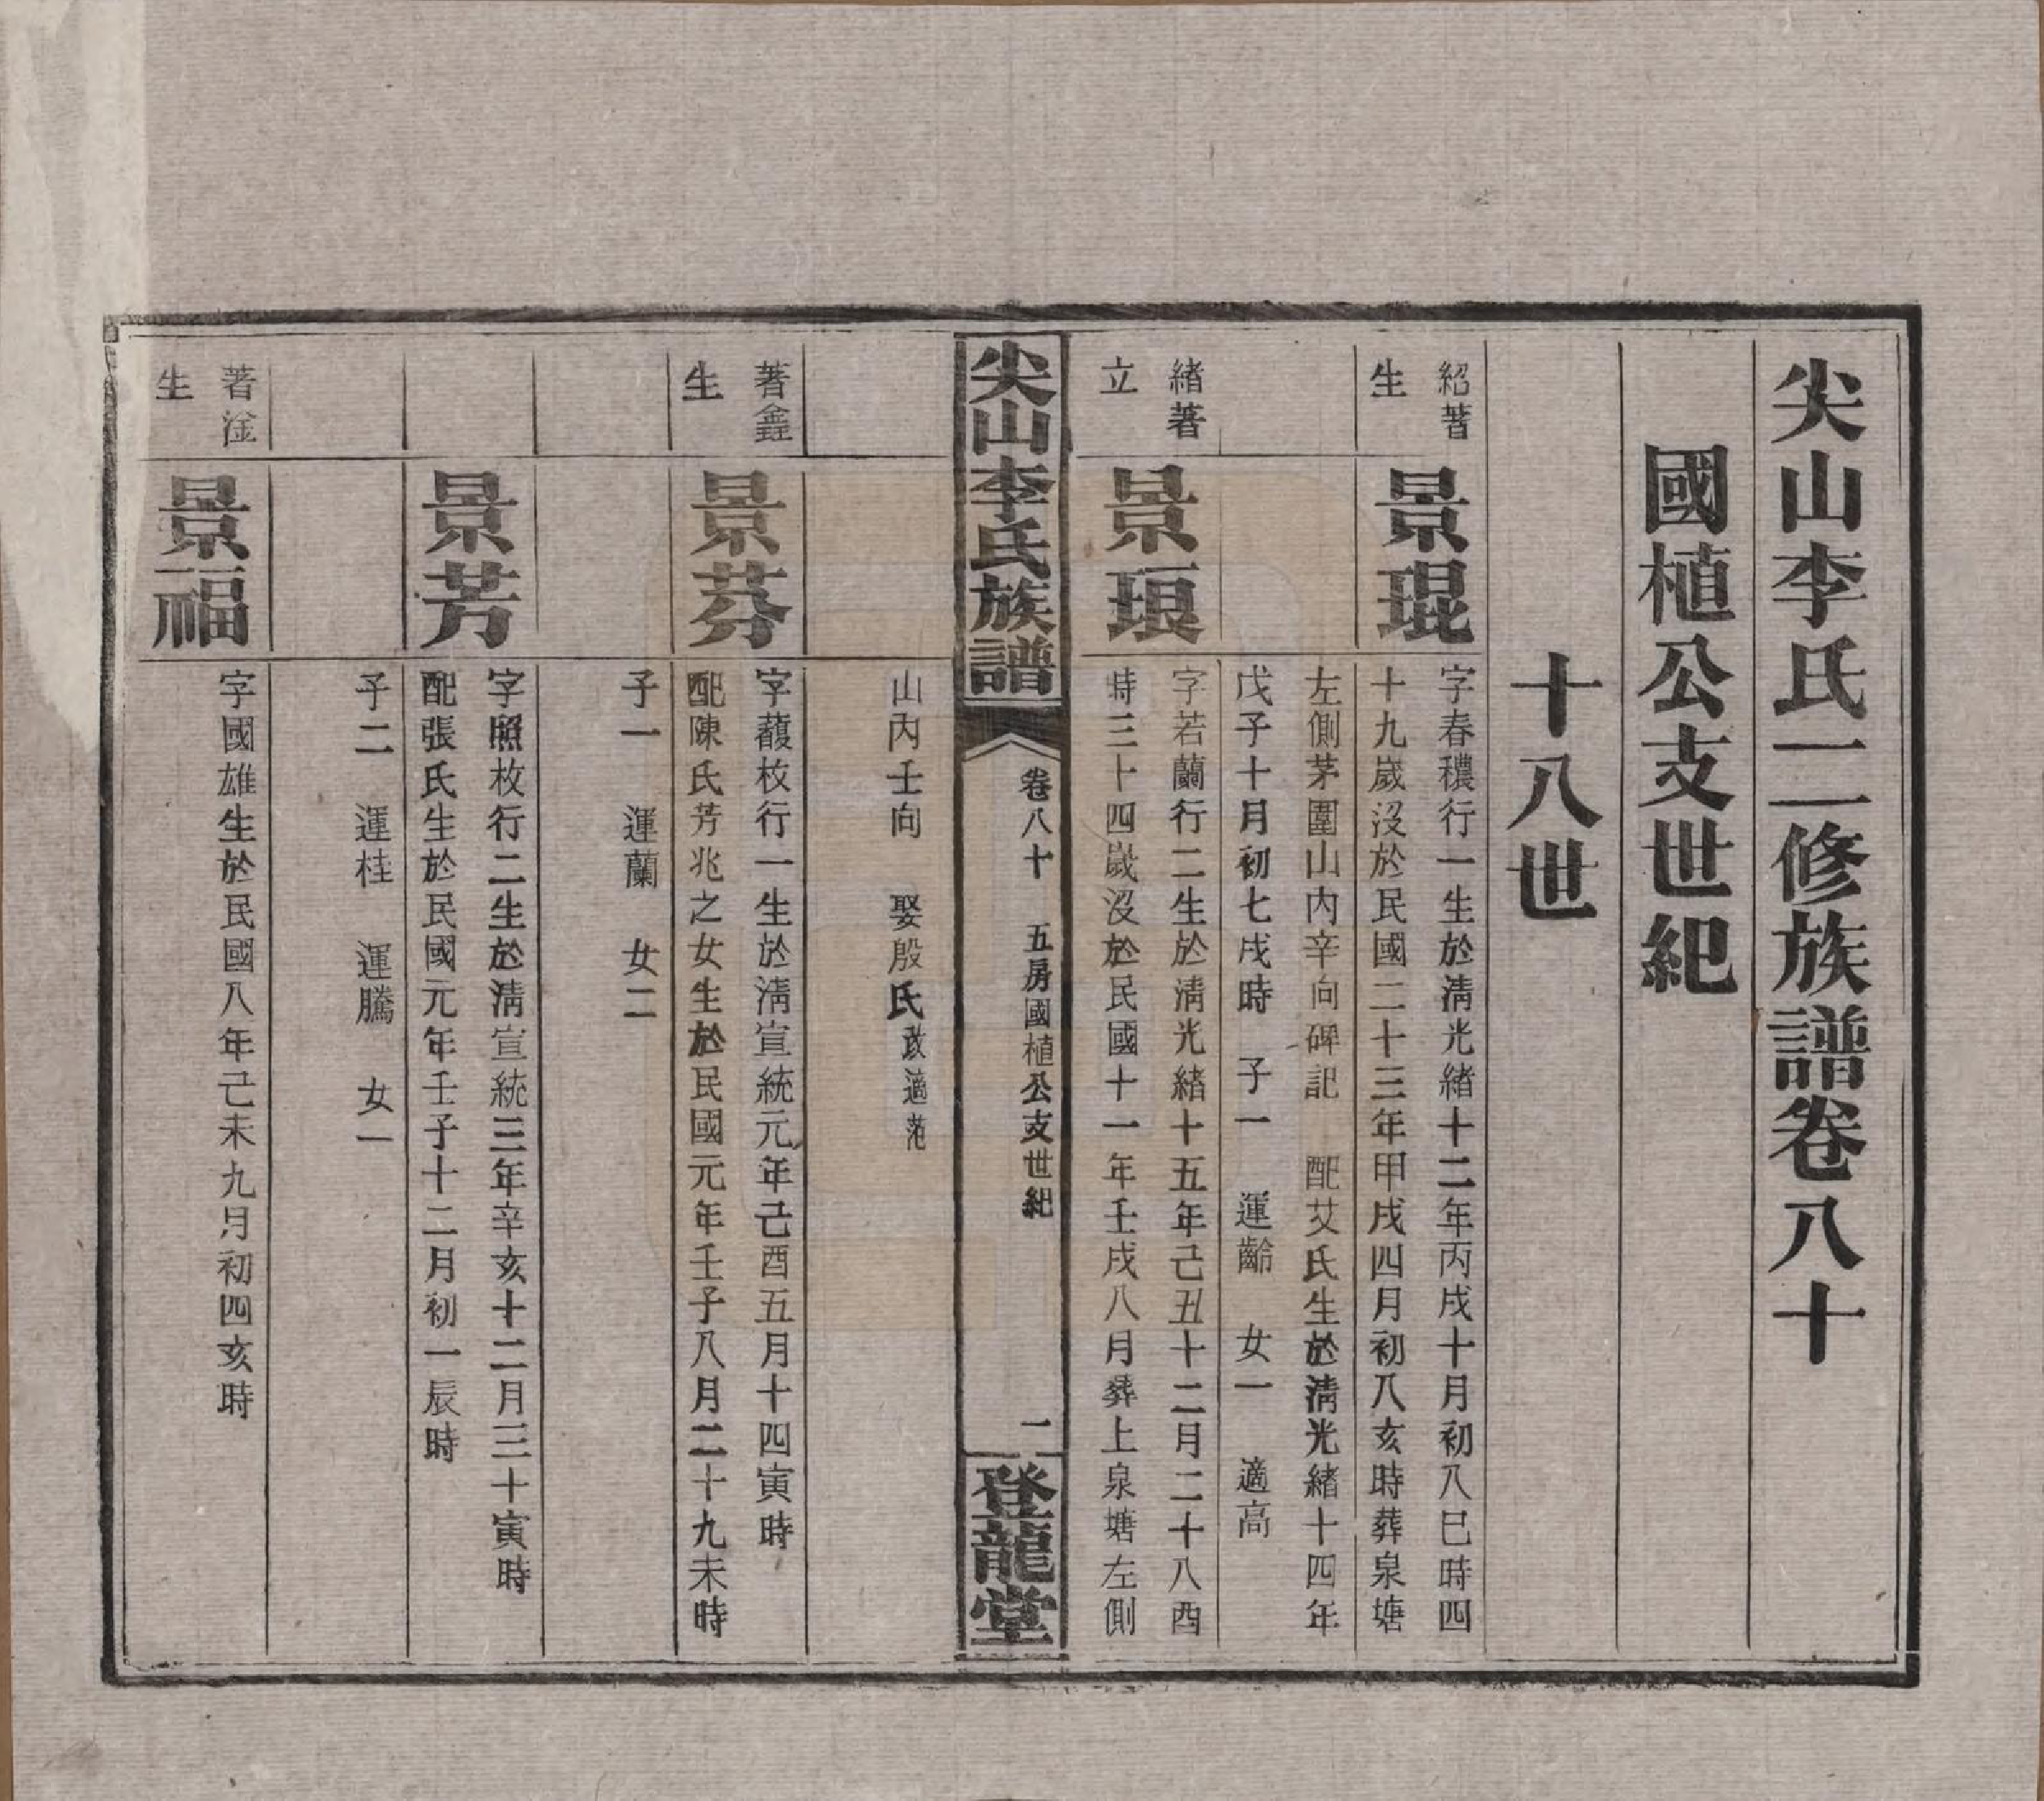 尖山李氏二修族譜卷八十
國植公支世紀
十八世
紹著
生
景琨
字春穠行一生於淸光緒十二年丙戌十月初八巳時四
十九歲沒於民國二十三年甲戌四月初八亥時葬泉塘
左側茅圍山內辛向碑記 配艾氏生於淸光緒十四年
戊子十月初七戌時 子一 運齡 女一 適高
緒著
立
景琅
字若蘭行二生於淸光緒十五年己丑十二月二十八酉
時三十四歲沒於民國十一年壬戌八月葬上泉塘左側
尖山李氏族譜
卷八十 五房國植公支世紀
一
登龍堂
山內壬向 娶殷氏改適范
著鑫
生
景芬
字馥枚行一生於淸宣統元年己酉五月十四寅時
配陳氏芳兆之女生於民國元年壬子八月二十九未時
子一 運蘭 女二
景芳
字照枚行二生於淸宣統三年辛亥十二月三十寅時
配張氏生於民國元年壬子十二月初一辰時
子二 運桂 運騰 女一
著淦
生
景福
字國雄生於民國八年己未九月初四亥時